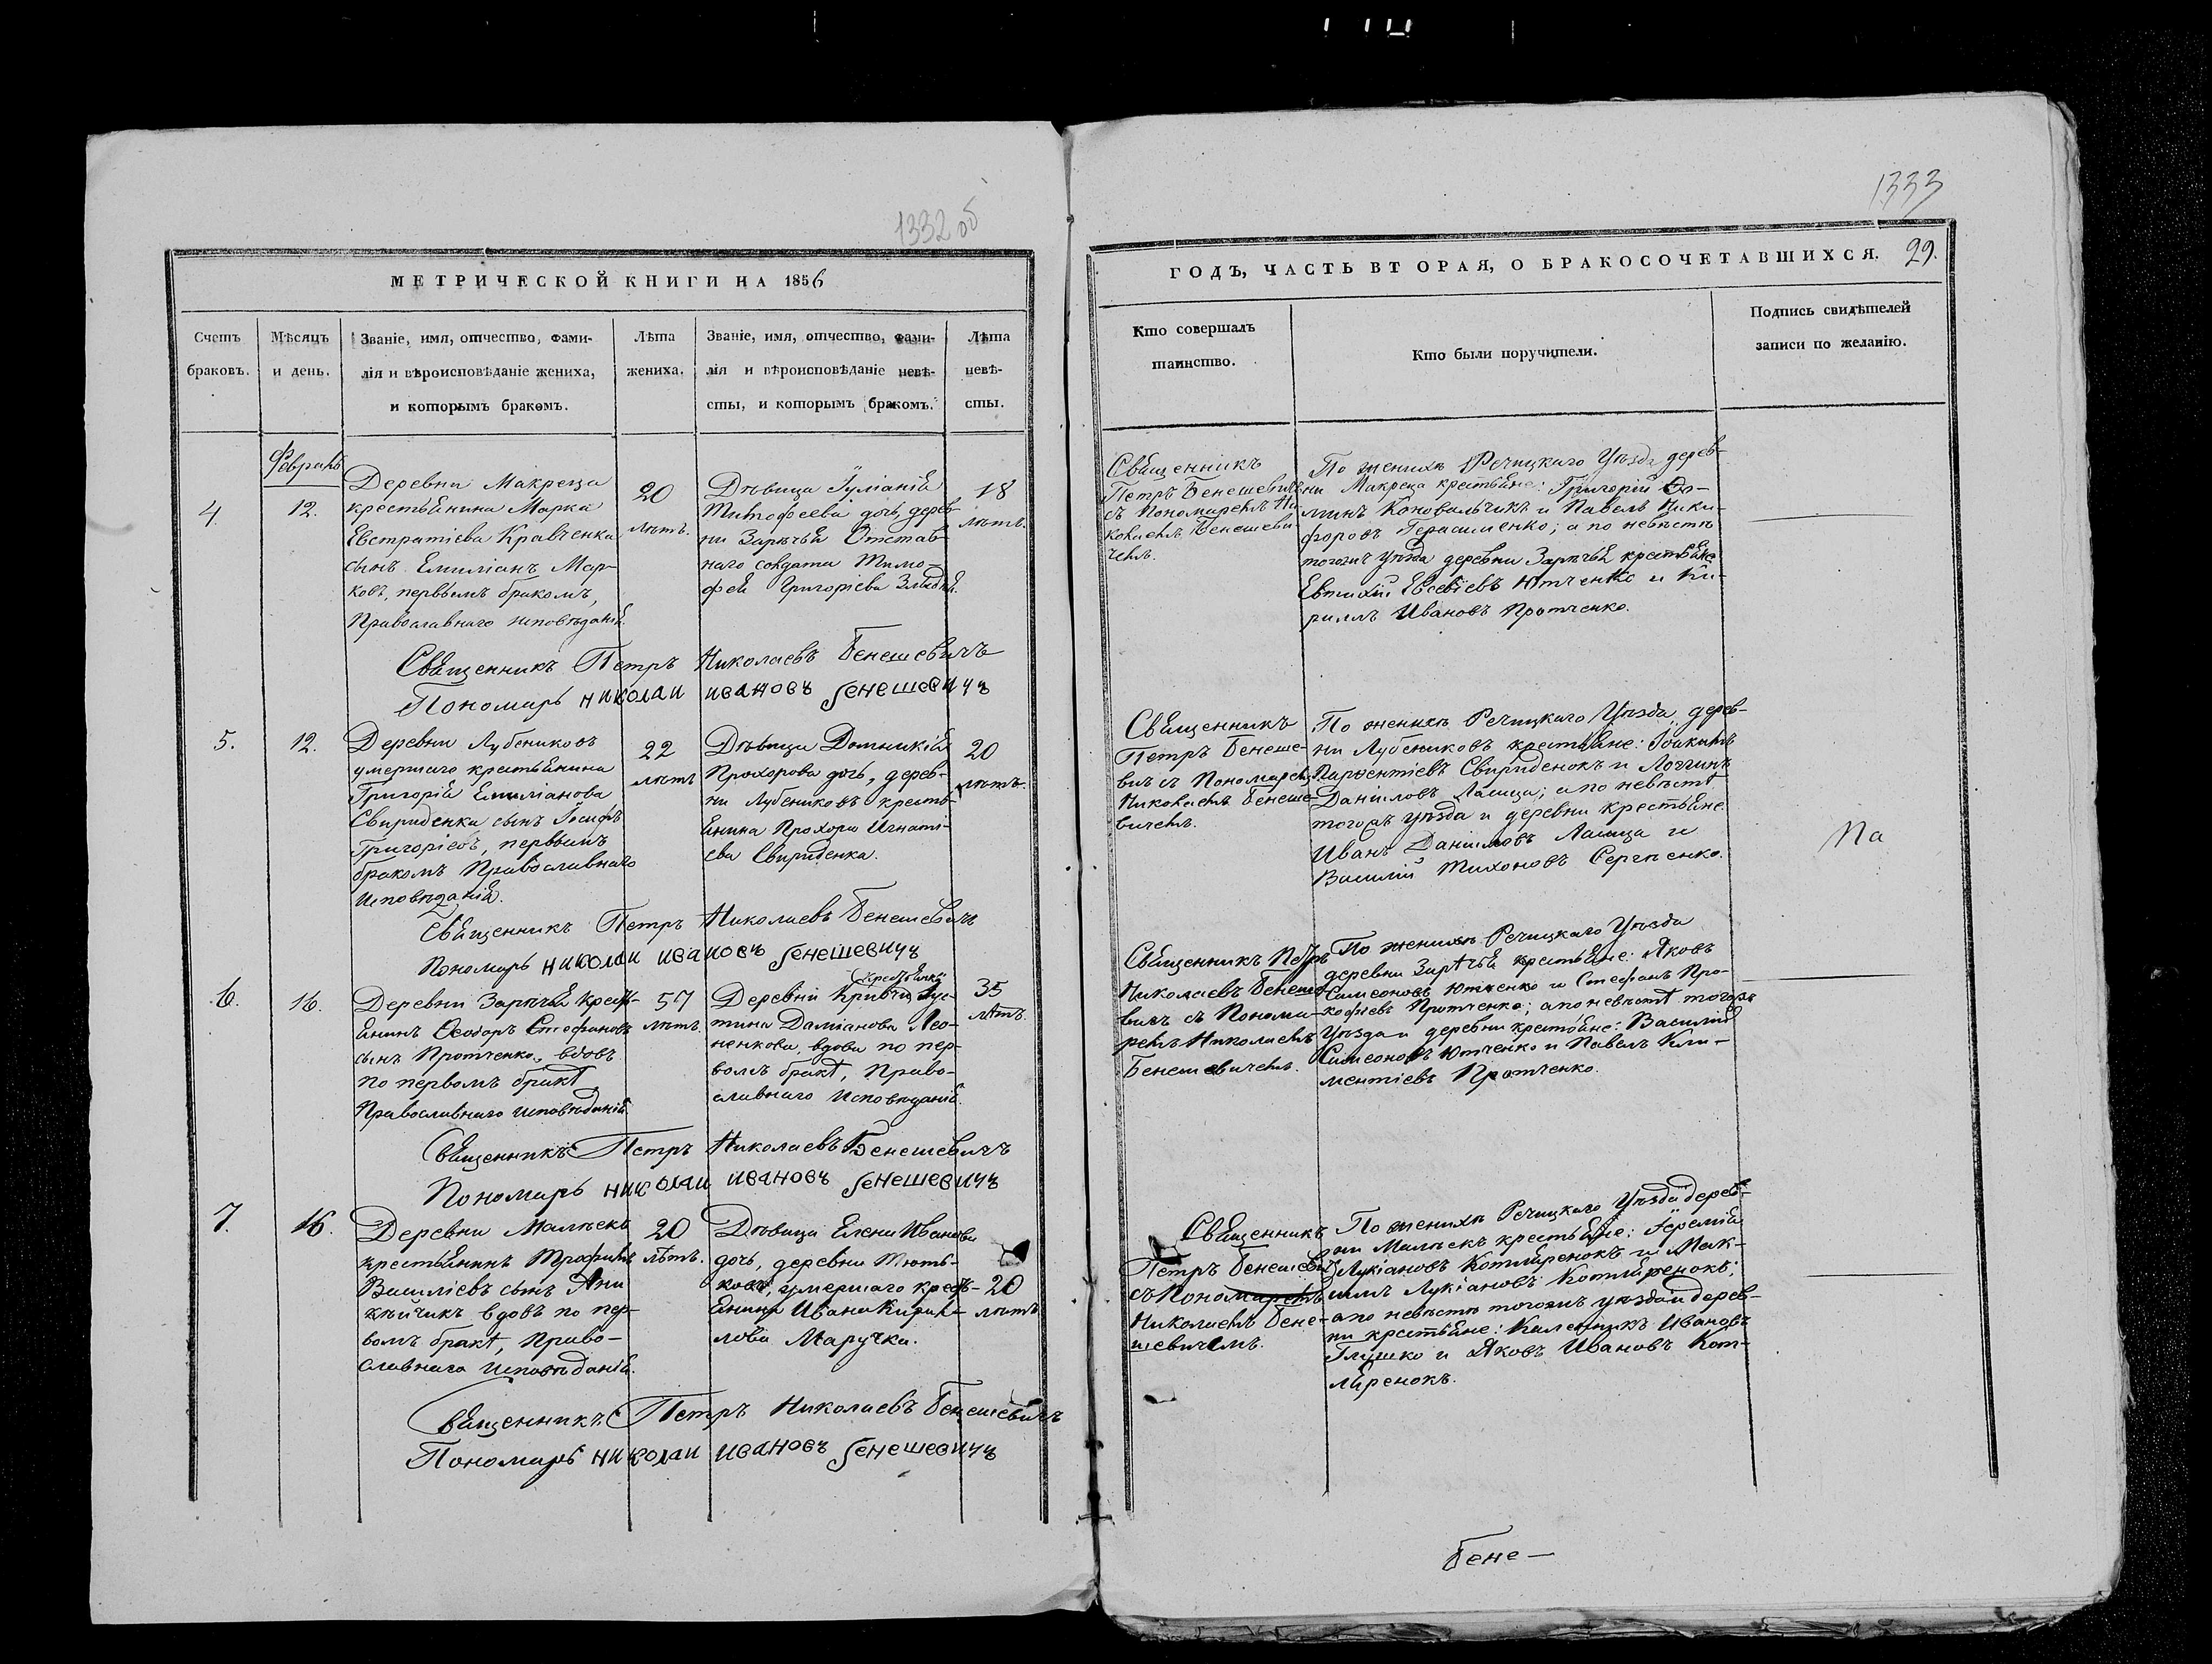 1332 об
МЕТРИЧЕСКОЙ КНИГИ НА 1856
Счетъ браковъ.
Мѣсяцъ и день.
Званіе, имя, отчество, фами-
лія и вѣроисповѣданіе жениха,
и которымъ бракомъ.
Лѣта жениха.
Званіе, имя, отчество, фами-
лія и вѣроисповѣданіе невѣ-
сты, и которымъ бракомъ.
Лѣта невѣ-
сты.
Февраль
4.
12.
Деревни Макреца
крестьянина Марка
Евстратіева Кравченка
сынъ Емиліанъ Мар-
ковъ, первымъ бракомъ,
Православнаго исповѣданія.
20
лѣтъ.
Дѣвица Іуліанія
Тимофеева дочь, дерев-
ни Зарѣчья Отстав-
наго солдата Тимо-
фея Григоріева
18
лѣтъ.
Священникъ Петръ Николаевъ Бенешевичъ
Пономарь николаи ивановъ бенешевичъ
5.
12.
Деревни Лубениковъ
умершаго крестьянина
Григорія Емиліанова
Свириденка сынъ Іосифъ
Григоріевъ, первымъ
бракомъ Православнаго
исповѣданія.
22
лѣтъ
Дѣвица Домникія
Прохорова дочь, дерев-
ни Лубениковъ кресть-
янина Прохора Игнаті-
ева Свириденка.
20
лѣтъ.
Священникъ Петръ Николаевъ Бенешевичъ
Пономарь николаи ивановъ бенешевичъ
6.
16.
Деревни Зарѣчья крест-
янинъ Ѳеодоръ Стефановъ
сынъ Протченко, вдовъ
по первомъ бракѣ,
Православнаго исповѣданія.
57
лѣтъ.
крестьянка
Деревни Іус-
тина Даміанова Лео-
ненкова, вдова по пер-
вомъ бракѣ, Право-
славнаго исповѣданія.
35
лѣтъ.
Священникъ Петръ Николаевъ Бенешевичъ
Пономарь николаи ивановъ бенешевичъ
7.
16.
Деревни Малѣекъ
крестьянинъ Трофимъ
Василіевъ сынъ
вдовъ по пер-
вомъ бракѣ, Право-
славнаго исповѣданія.
20
лѣтъ.
Дѣвица Елена Иванова
дочь, деревни Тють-
ковъ, умершаго крест-
янина Ивана Кирил-
лова Маручка.
20
лѣтъ
Священникъ Петръ Николаевъ Бенешевичъ
Пономарь николаи ивановъ бенешевичъ
1333
ГОДЪ, ЧАСТЬ ВТОРАЯ, О БРАКОСОЧЕТАВШИХСЯ.
29.
Кто совершалъ
таинство.
Кто были поручители.
Подпись свидѣтелей
записи по желанію.
Священникъ
Петръ Бенешевичъ
съ Пономаремъ Ни-
колаемъ Бенешеви-
чемъ.
По женихѣ Речицкаго Уѣзда дерев-
ни Макреца крестьяне: Григорій Ѳо-
минъ Коновальчикъ и Павелъ Ники-
форовъ Герасименко; а по невѣстѣ
тогожъ уѣзда деревни Зарѣчья крестьяне
Евтихій Евсевіевъ Ютченко и Ки-
риллъ Ивановъ Протченко.
Священникъ
Петръ Бенеше-
вичъ съ Пономаремъ
Николаемъ Бенеше-
вичемъ.
По женихѣ Речицкаго Уѣзда дерев-
ни Лубениковъ крестьяне: Іоакимъ
Парѳентіевъ Свириденокъ и Логгинъ
Даніиловъ Лапица; а по невѣстѣ
тогожъ уѣзда и деревни крестьяне
Иванъ Даніиловъ Лапица и
Василій Тихоновъ Сергіенко.
Па
Священникъ Петръ
Николаевъ Бенеше-
вичъ съ Понома-
ремъ Николаемъ
Бенешевичемъ.
По женихѣ Речицкаго Уѣзда
деревни Зарѣчья крестьяне: Яковъ
Симеоновъ Ютченко и Стефанъ Про-
кофіевъ Протченко; а по невѣстѣ тогожъ
Уѣзда и деревни крестьяне: Василій
Симеоновъ Ютченко и Павелъ Кли-
ментіевъ Протченко.
Священникъ
Петръ Бенешевичъ
съ Пономаремъ
Николаемъ Бене-
шевичемъ.
По женихѣ Речицкаго Уѣзда дерев-
ни Малѣекъ крестьяне: Іеремія
Лукіановъ Котляренокъ и Мак-
симъ Лукіановъ Котляренокъ;
а по невѣстѣ тогожъ уѣзда и дерев-
ни крестьяне: Калинникъ Ивановъ
Глушко и Яковъ Ивановъ Кот-
ляренокъ.
Бене-